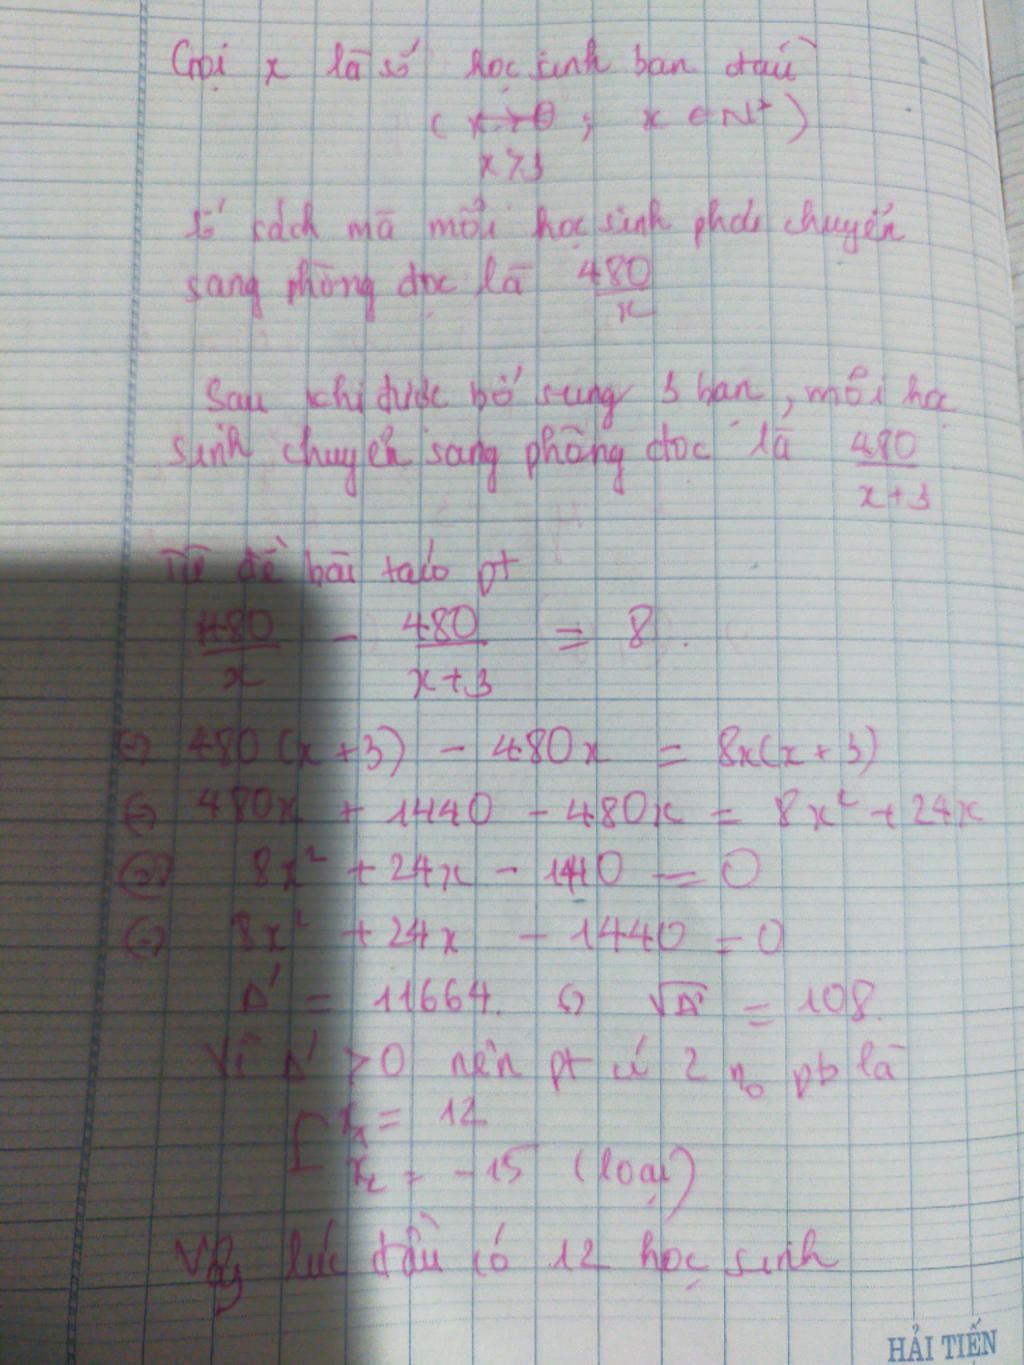 Gọi x là số học sinh ban đầu
( x > 0 ; x ∈ N* )
x > 3
số sách mà mỗi học sinh phải chuyển
sang phòng đọc là 480/x
Sau khi được bổ sung 3 bạn, mỗi học
sinh chuyển sang phòng đọc là 480/x+3
Từ đề bài ta có pt
480/x - 480/x+3 = 8.
⇔ 480(x+3) - 480x = 8x(x+3)
⇔ 480x + 1440 - 480x = 8x² + 24x
⇔ 8x² + 24x - 1440 = 0
⇔ 8x² + 24x - 1440 = 0
Δ' = 11664. ⇔ √Δ' = 108.
Vì Δ' > 0 nên pt có 2 no pb là
[ x₁ = 12
x₂ = -15 (loại)
Vậy lúc đầu có 12 học sinh
HẢI TIẾN